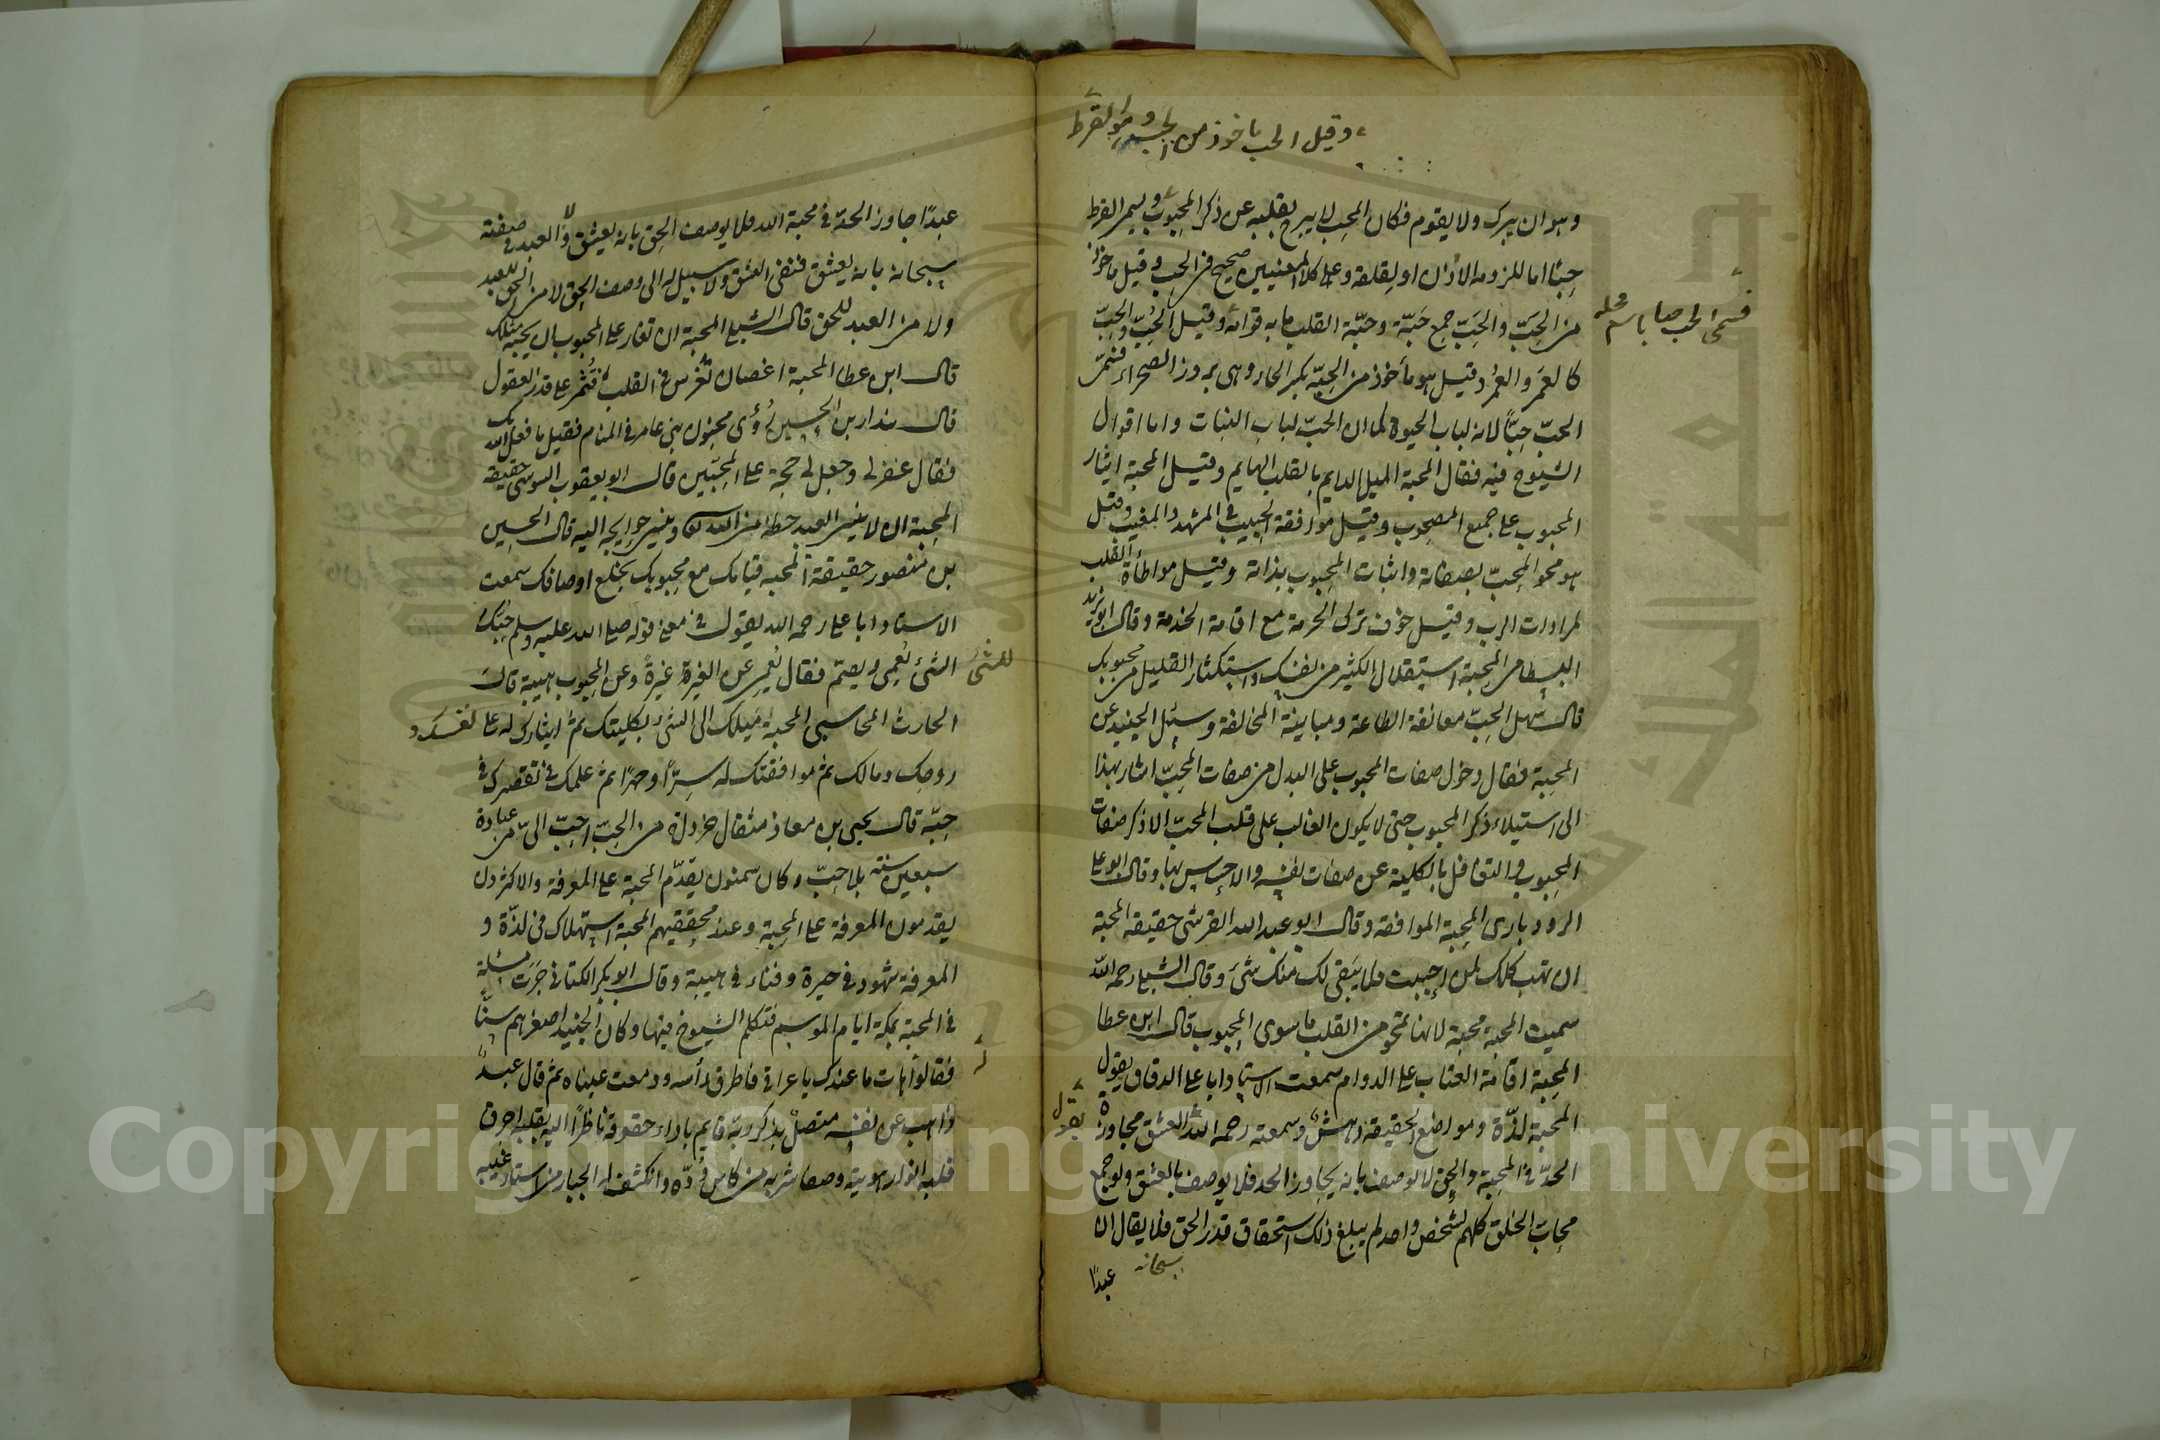 وقيل الحب ماخوذ من الحب وهو القرط
وهو ان يبرك ولا يقوم فكان المحب لا يبرح بقلبه عن ذكر المحبوب ويسمى القرط
حِبًّا اما للزومه الاذن او لقلقه وعلى كلا المعنيين صحيح فى الحب وقيل ماخوذ
فسمى الحب حبا باسم محله
من الحَبّ والحَبّ جمع حَبّة وحبّة القلب ما به قوامه وقيل الحُبّ والحِبّ
كالعَمر والعُمر وقيل هو مأخوذ من الحِبّة بكسر الحاء وهى بروز الصحراء فسمى
الحبّ حِبّاً لانه لباب الحيوة كما ان الحبّ لباب النبات واما اقوال
الشيوخ فيه فقال المحبة الميل الدايم بالقلب الهايم وقيل المحبة ايثار
المحبوب على جميع المصحوب وقيل موافقة الحبيب فى المشهد والمغيب وقيل
هو محو المحبّ بصفاته واثبات المحبوب بذاته وقيل مواطأة القلب
لمرادات الرب وقيل خوف ترك الحرمة مع اقامة الخدمة وقال ابو يزيد
البسطامى المحبة استقلال الكثير من نفسك واستكثار القليل من محبوبك
قال سهل الحبّ معانقة الطاعة ومباينة المخالفة وسئل الجنيد عن
المحبة فقال دخول صفات المحبوب على البدل من صفات المحبّ اشار بهذا
الى استيلاء ذكر المحبوب حتى لا يكون الغالب على قلب المحبّ الا ذكر صفات
المحبوب والتغافل بالكلية عن صفات نفسه والاحساس بها وقال ابو على
الرودبارى المحبة الموافقة وقال ابو عبد الله القرشى حقيقة المحبة
ان تهب كلك لمن احببت فلا يَبقى لك منك شئ وقال الشبلى رحمه الله
سميت المحبة محبة لانها تمحو من القلب ما سوى المحبوب قال ابن عطا
المحبة اقامة العتاب على الدوام سمعت الاستاد ابا على الدقاق يقول
المحبة لذّة ومواضع الحقيقة دهش وسمعته رحمه الله العشق مجاوزة
يقول
الحدّ فى المحبة والحق لا يوصف بانه يجاوز الحد فلا يوصف بالعشق ولو جمع
محابّ الخلق كلهم لشخص واحد لم يبلغ ذلك استحقاق قدر الحق فلا يقال ان
سبحانه
عبدًا
عبدًا جاوز الحدّ فى محبة الله فلا يوصف الحق بانه يعشق ولا العبد فى صفته
سبحانه بانه يعشق فنفى العشق ولا سبيل له الى وصف الحق لا من الحق للعبد
ولا من العبد للحق قال الشبلى المحبة ان تغار على المحبوب ان يحبه مثلك
قال ابن عطا المحبة اغصان تُغرس فى القلب فتُثمر على قدر العقول
قال بندار بن الحسين رُؤى مجنون بنى عامر فى المنام فقيل ما فعل الله بك
فقال غفر لى وجعل لى حجة على المحبّين قال ابو يعقوب السوسى حقيقة
المحبة ان لا ينسى العبد حظه من الله وينسى حوايجه اليه قال الحسين
بن منصور حقيقة المحبه قيامك مع محبوبك بخلع اوصافك سمعت
الاستاد ابا على رحمه الله يقول فى معنى قوله صلى الله عليه وسلم حبّك
للشئ
الشئ يُعمى ويصمّ فقال يُعمى عن الغيرة غيرةً وعن المحبوب هيبة قال
الحارث المحاسبى المحبة مَيلك الى الشئ بكليتك ثم ايثارك له على نفسك و
روحك ومالك ثم موافقتك له سِرّاً وجهرًا ثم علمك فى تقصيرك فى
حبّه قال يحيى بن معاذ مثقال خردلة من الحبّ احبّ الىّ من عبادة
سبعين سنة بلا حبّ وكان سمنون يقدّم المحبة على المعرفة والاكثرون
يقدمون المعرفة على المحبة وعند محققيهم المحبة استهلاك فى لذّة و
المعرفة شهود فى حيرة وفناء فى هيبة وقال ابو بكر الكتانى جَرَت مسئلة
فى المحبة بمكة ايام الموسم فتكلم الشيوخ فيها وكان الجنيد اصغرهم سنًّا
فقالوا هات ما عندك يا عراقى فاطرق رأسه ودمعت عيناه ثم قال عبدٌ
ذاهب عن نفسه متصلٌ بذكر ربّه قايم باداء حقوقه ناظرًا اليه بقلبه احرق
قلبه انوار هويته وصفا شربه من كاس وُدّه وانكشف له الجبار من استار غيبه